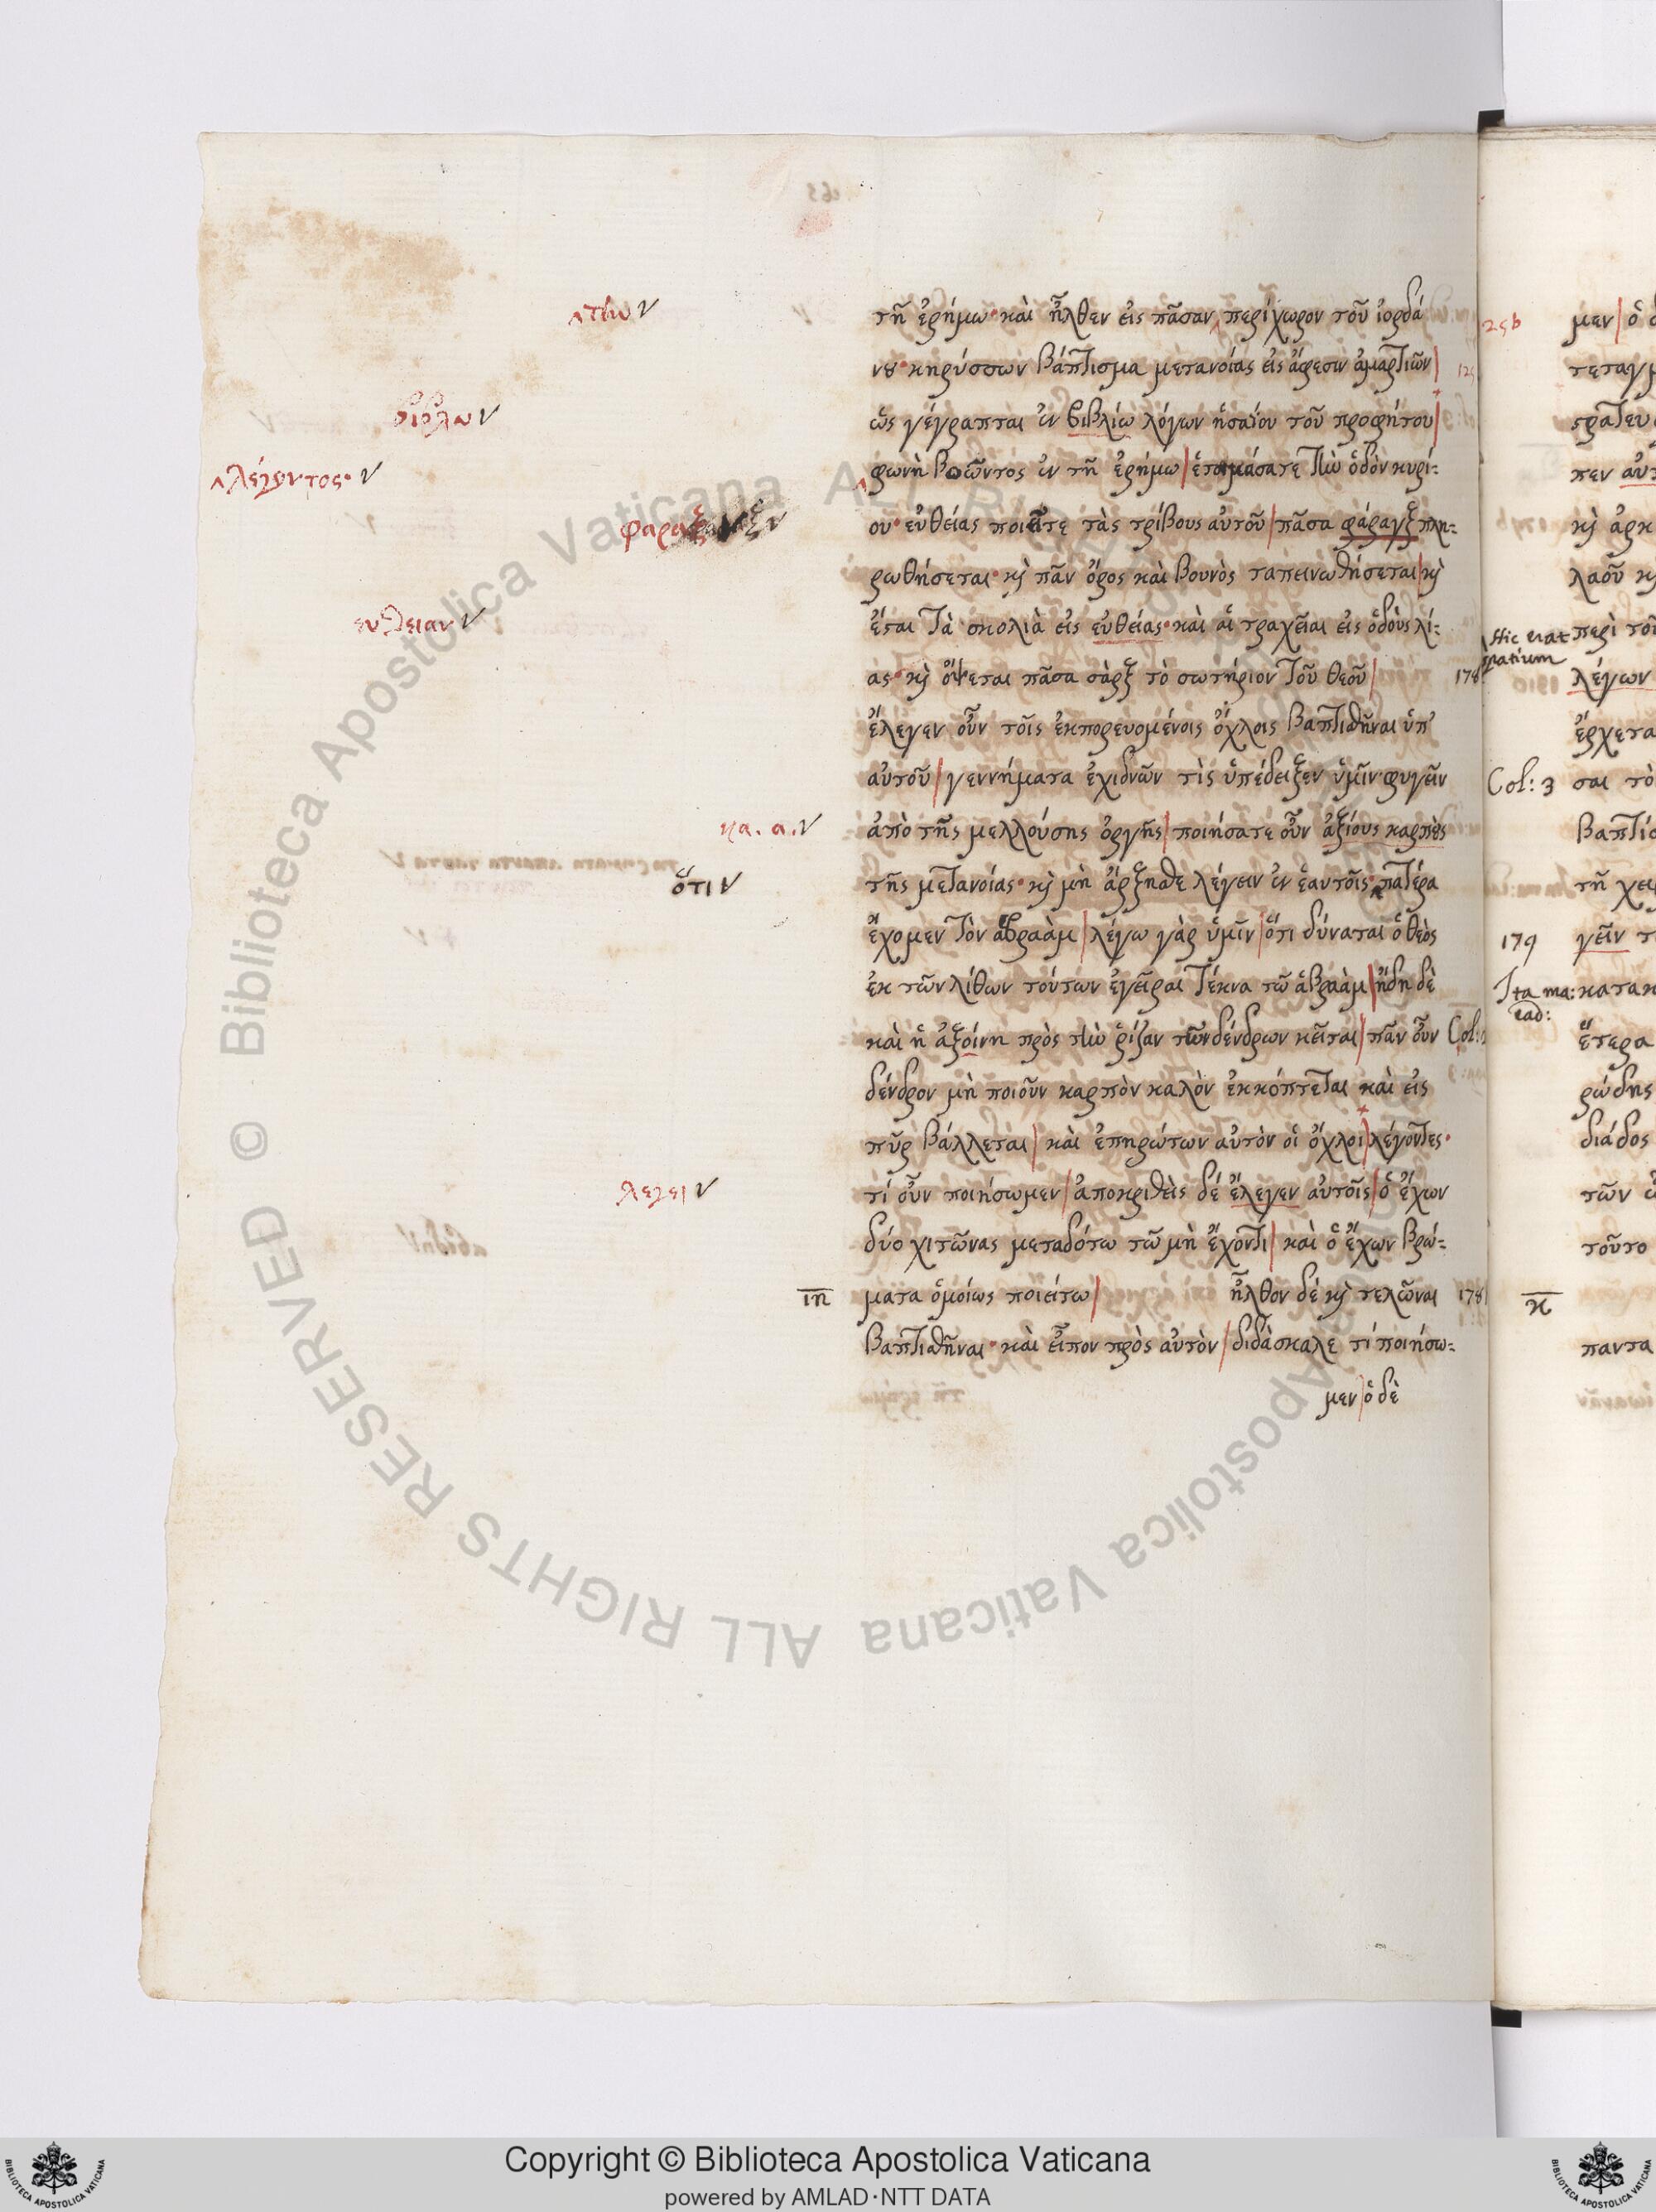 τὴν ν
τῆ ἐρήμω· καὶ ἦλθεν εἰς πᾶσαν περίχωρον τοῦ ἰορδά
νου· κηρύσσων βάπτισμα μετανοίας εἰς ἄφεσιν ἁμαρτιῶν
βιβλω ν
ὡς γέγραπται ἐν βιβλίω λόγων ἠσαΐου τοῦ προφήτου
λέγοντος· ν
φωνὴ βοῶντος ἐν τῆ ἐρήμω ἑτοιμάσατε τὴν ὁδὸν κυρί-
φαραξ
ου· εὐθείας ποιεῖτε τὰς τρίβους αὐτοῦ πᾶσα φάραγξ πλη-
ρωθήσεται· κὶ πᾶν ὄρος καὶ βουνὸς ταπεινωθήσεται κὶ
ευθειαν ν
ἔσται τὰ σκολιὰ εἰς εὐθείας· καὶ αἱ τραχεῖαι εἰς ὁδοὺς λί-
ας· κὶ ὄψεται πᾶσα σὰρξ τὸ σωτήριον τοῦ θεοῦ 178
ἔλεγεν οὖν τοῖς ἐκπορευομένοις ὄχλοις βαπτισθῆναι ὑπ'
αὐτοῦ γεννήματα ἐχιδνῶν τὶς ὑπέδειξεν ὑμῖν φυγεῖν
κα. α. ν
ἀπὸ τῆς μελλούσης ὀργῆς ποιήσατε οὖν ἀξίους καρποὺς
ὅτι ν
τῆς μετανοίας· κὶ μὴ ἄρξησθε λέγειν ἐν ἑαυτοῖς· πατέρα
ἔχομεν τὸν ἀβραὰμ λέγω γὰρ ὑμῖν ὅτι δύναται ὁ θεὸς
ἐκ τῶν λίθων τούτων ἐγεῖραι τέκνα τῶ ἀβραὰμ ἤδη δὲ
καὶ ἡ ἀξοίνη πρὸς τὴν ῥίζαν τῶν δένδρων κεῖται πᾶν οὖν Col:
δένδρον μὴ ποιοῦν καρπὸν καλὸν ἐκκόπτεται καὶ εἰς
πῦρ βάλλεται καὶ ἐπηρώτων αὐτὸν οἱ ὄχλοι λέγοντες·
λεγει ν
τί οὖν ποιήσωμεν ἀποκριθεὶς δέ ἔλεγεν αὐτοῖς ὁ ἔχων
δύο χιτῶνας μεταδότω τῶ μὴ ἔχοντι καὶ ὁ ἔχων βρώ-
ιη ματα ὁμοίως ποιείτω ἦλθον δέ κὶ τελῶναι 178
βαπτισθῆναι· καὶ εἶπον πρὸς αὐτὸν διδάσκαλε τί ποιήσω-
μεν ὁ δὲ
25b μεν ὁ
τεταγμ
στρατευ
πεν αὐτ
κὶ ἀρκ
λαοῦ κὶ
Hic erat spatium
περὶ τοῦ
λέγων
ἔρχετα
Col: 3 σαι τὸ
βαπτίσ
τῆ χει
179 γεῖν τ
Ita ma: κατακ
ead:
ἕτερα
ρώδης
διάδος
τῶν
τοῦτο
κ
παντα
© Biblioteca Apostolica Vaticana ALL RIGHTS RESERVED
Copyright © Biblioteca Apostolica Vaticana
powered by AMLAD·NTT DATA
BIBLIOTECA APOSTOLICA VATICANA
BIBLIOTECA APOSTOLICA VATICANA